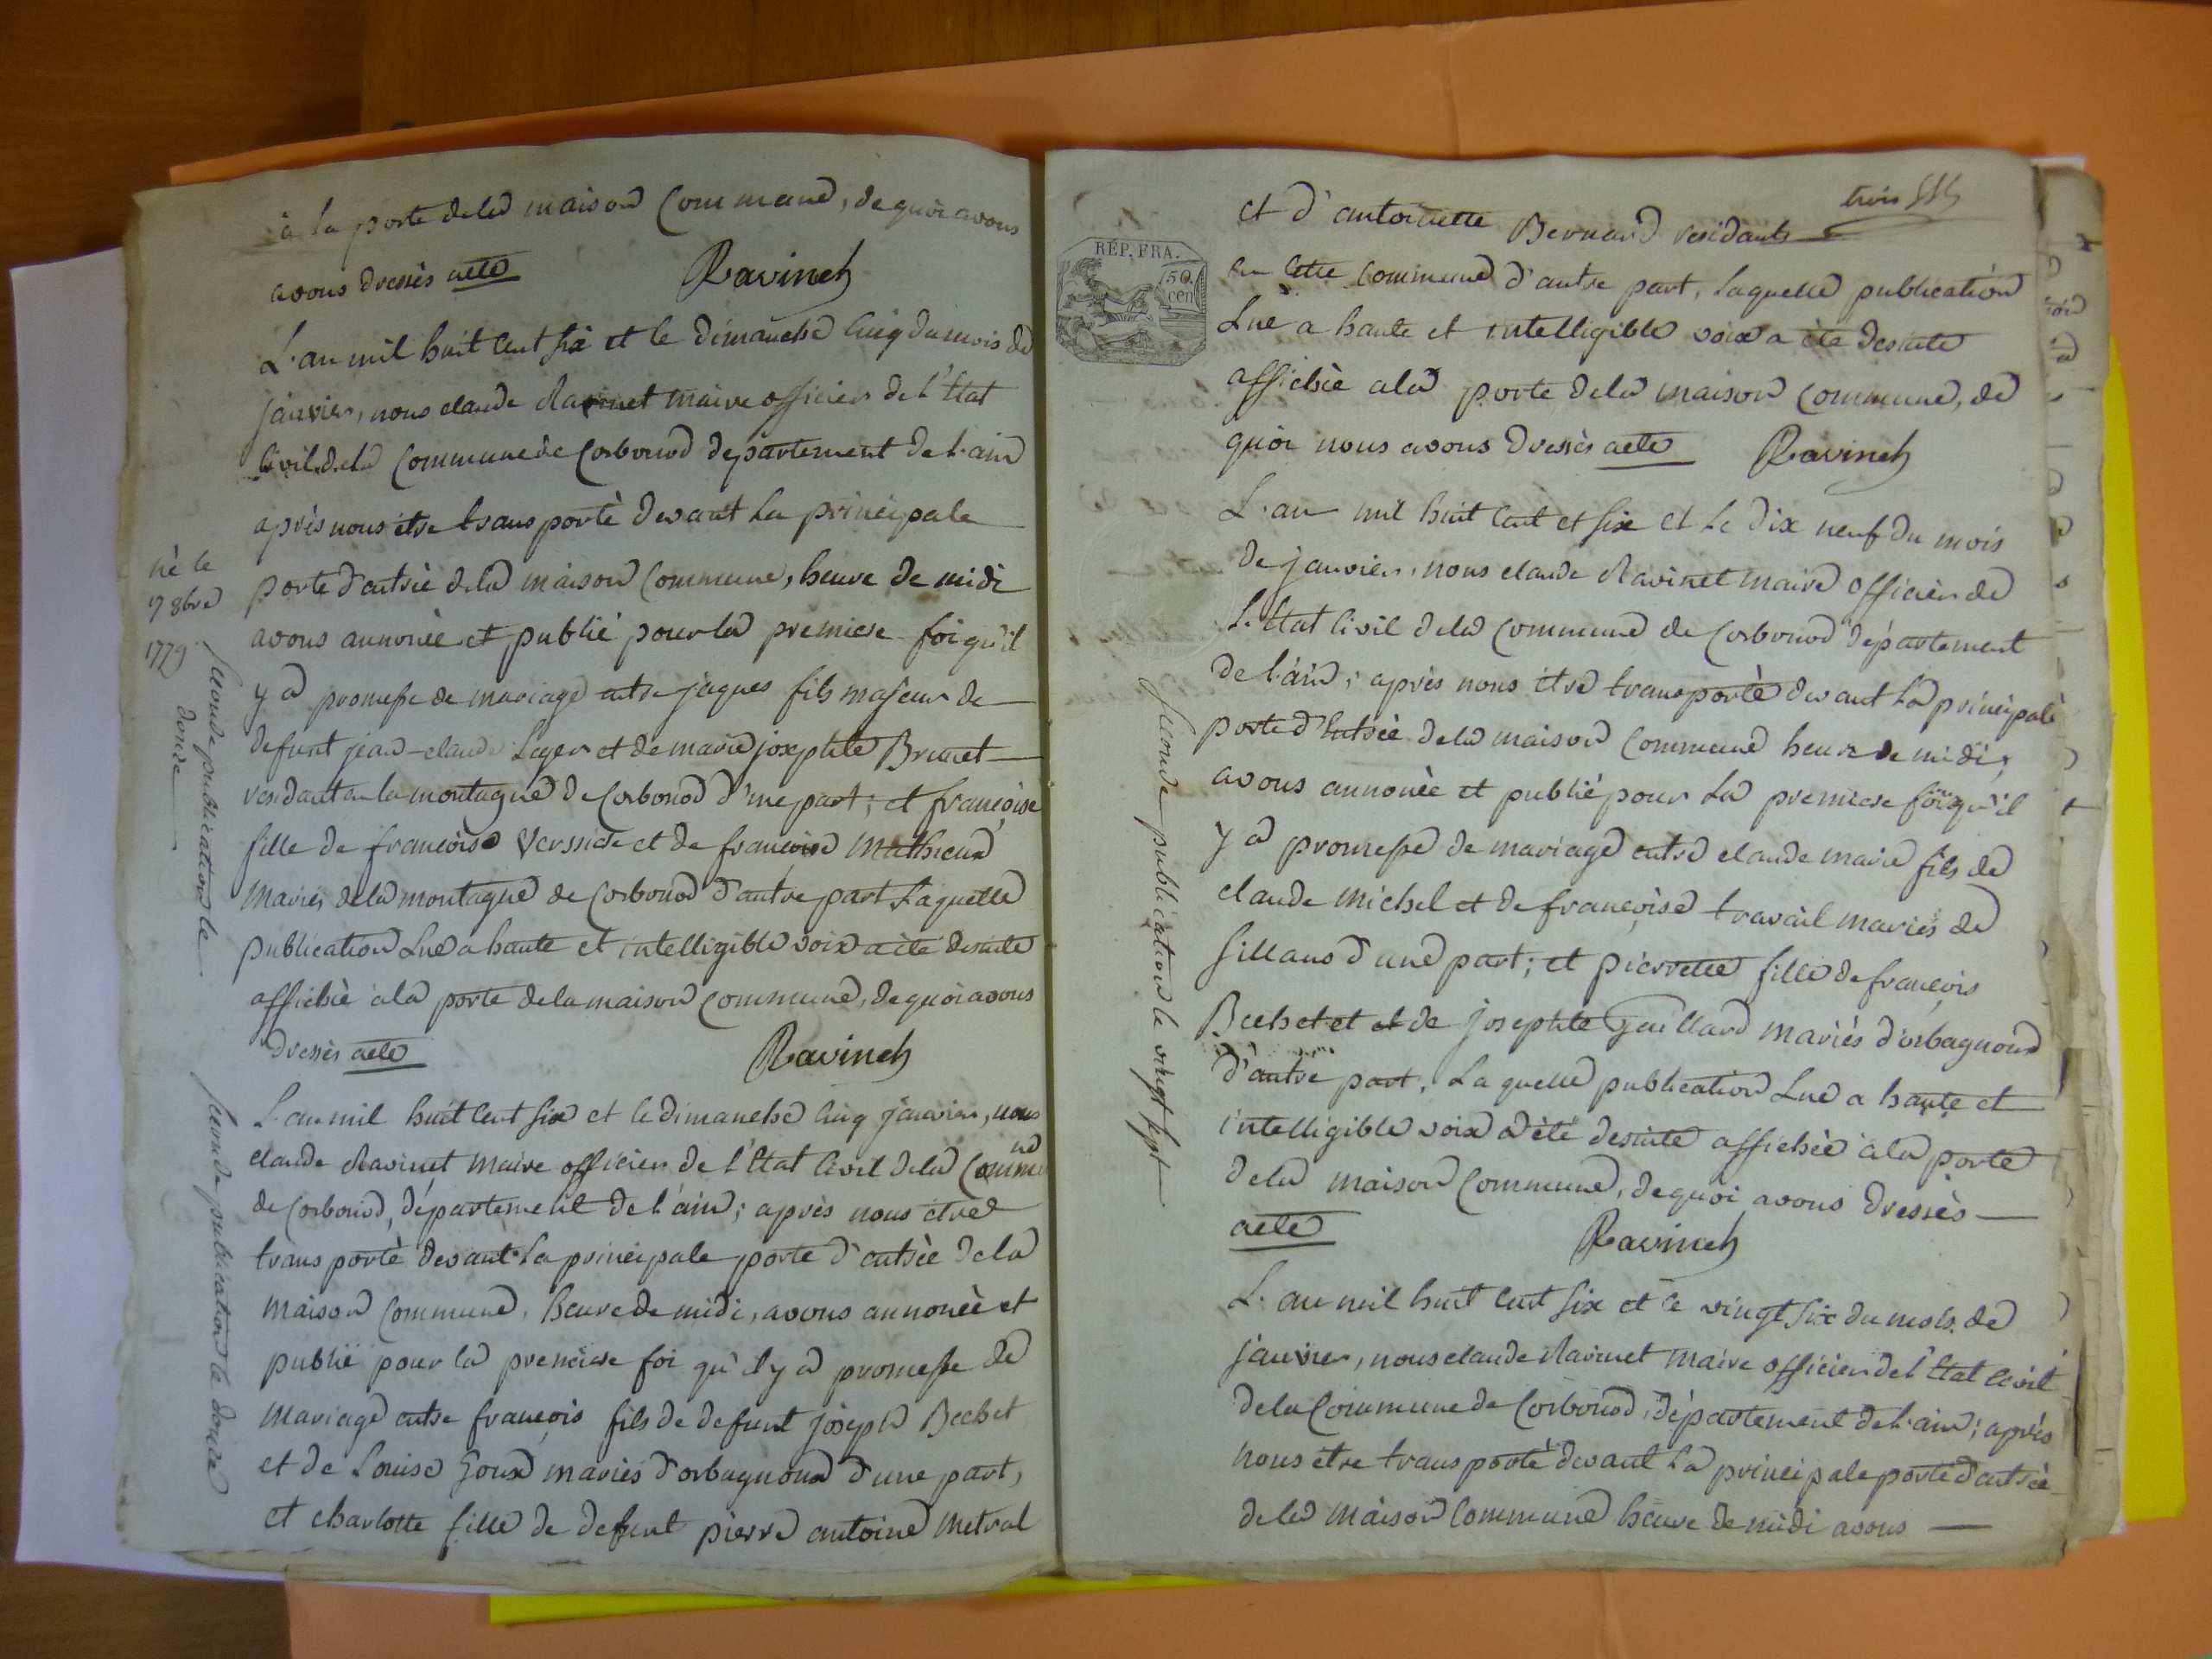 à la porte dela maison Commune, dequoi avons
avons dressès acte
Ravinet
L'an mil huit cent six et le dimanche cinq du mois de
janvier, nous claude Ravinet maire officier de l'Etat
Civil dela Commune de Corbonod departement de l'ain
après nous etre transportè devant la principale
porte d'entrèe dela maison Commune, heure de midi
avons annoncè et publié pour la premiere foi qu'il
y a promesse de mariage entre jaques fils majeur de
defunt jean-claude Leger et de marie josephte Brunet
residant en la montagne de Corbonod d'une part; et françoise
fille de françoise Verssiere et de françoise Mathieux
Mariès dela montagne de Corbonod d'autre part Laquelle
publication Lue a haute et intelligible voix a été desuite
affichèe a la porte de la maison Commune, dequoi avons
dressès acte
Ravinet
né le
17 8bre
1779
seconde publication le
douze
L'an mil huit cent six et le dimanche cinq janvier, nous
claude Ravinet Maire officier de l'Etat Civil dela Commune
de Corbonod, département de l'ain; après nous etre
transportè devant la principale porte d'entrèe dela
Maison Commune, heure de midi, avons annoncè et
publié pour la premiere foi qu'il y a promesse de
Mariage entre françois fils de defunt joseph Bechet
et de Louise Goux mariès d'orbagnoux d'une part,
et charlotte fille de defunt pierre antoine Metral
seconde publication le douze
trois
et d'antoinette Bernard residants
en cette Commune d'autre part, Laquelle publication
Lue a haute et intelligible voix a été desuite
affichèe a la porte dela maison Commune, de
quoi nous avons dressès acte
Ravinet
L'an mil huit cent et six et le dix neuf du mois
de janvier, nous claude Ravinet maire officier de
L'Etat Civil dela Commune de Corbonod département
de l'ain; après nous etre transportè devant la principale
porte d'Entrèe dela maison Commune heure de midi,
avons annoncè et publié pour la premiere foi qu'il
y a promesse de mariage entre claude marie fils de
claude Michel et de françoise travail mariès de
Sillans d'une part; et pierrette fille de françois
Bechet et de josephte Gaillard mariès d'orbagnoux
d'autre part. La quelle publication Lue a haute et
intelligible voix a été desuite affichèe a la porte
dela maison Commune, dequoi avons dressès
acte
Ravinet
seconde publication le vingt sept
L'an mil huit cent six et le vingt six du mois de
janvier, nous claude Ravinet Maire officier de l'Etat Civil
de la Commune de Corbonod, département de l'ain; après
nous etre transportè devant la principale porte d'entrèe
dela Maison Commune heure de midi avons
RÉP. FRA.
50
cen